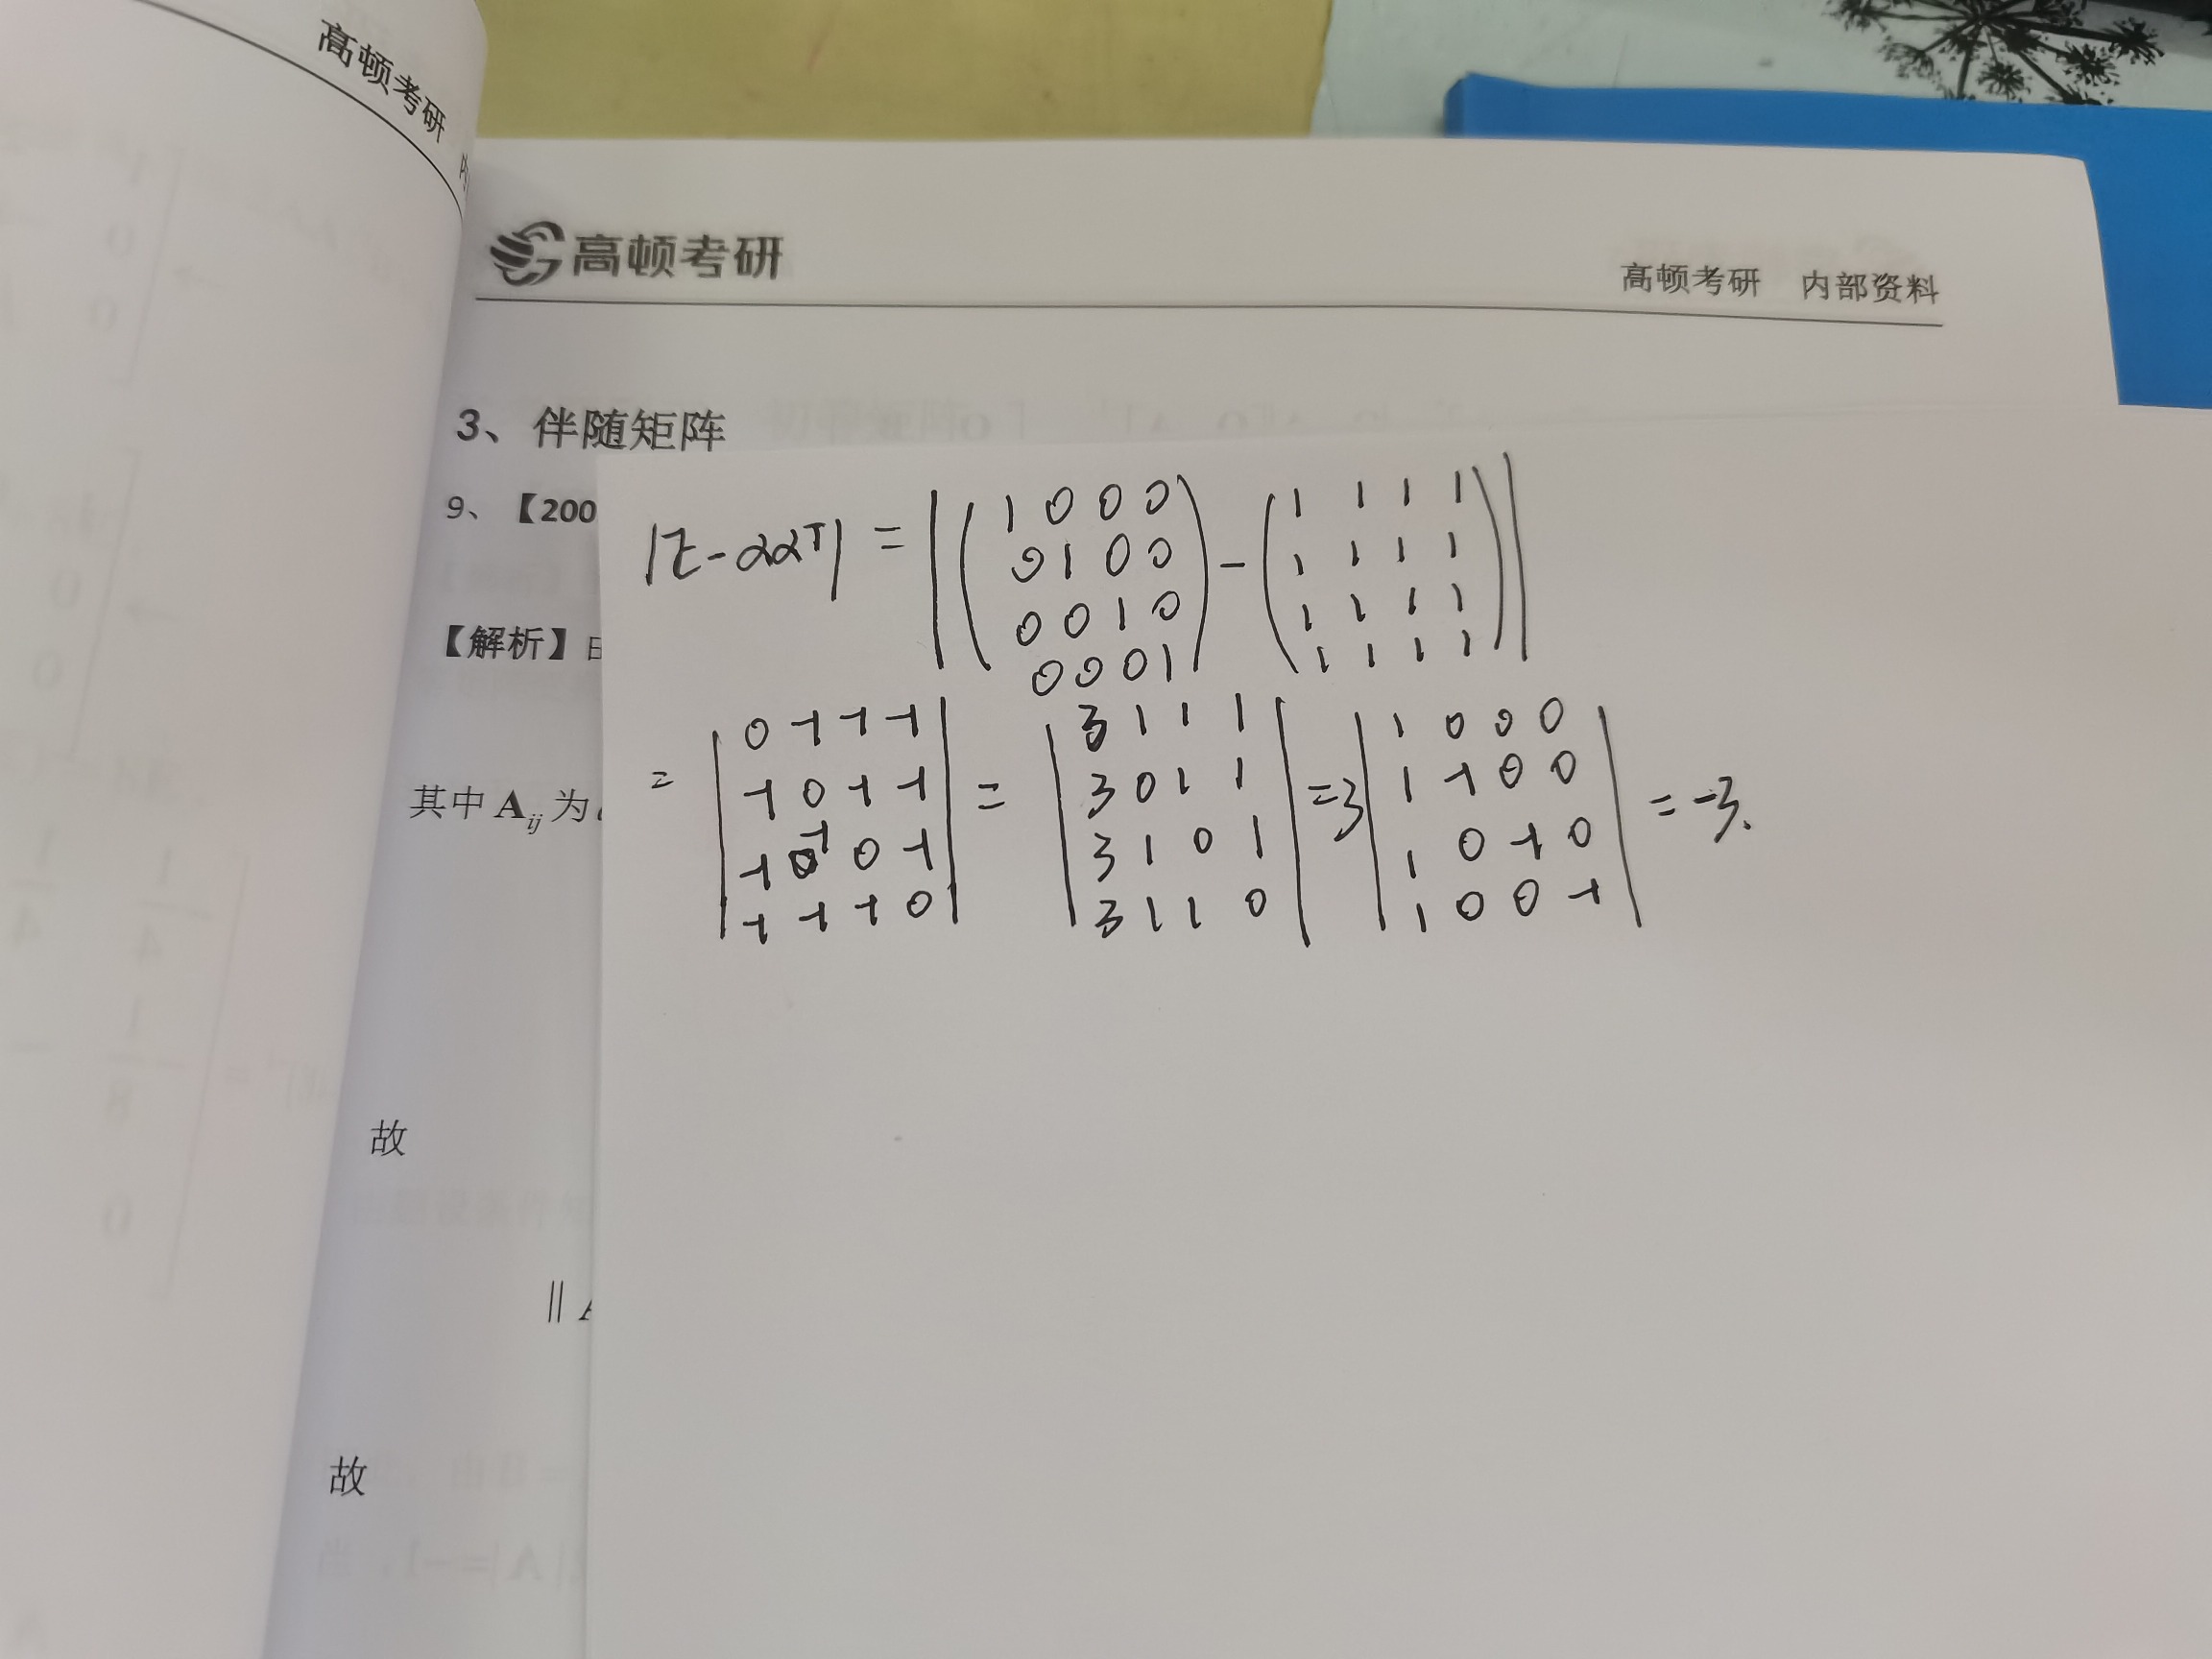 高顿考研
高顿考研
高顿考研 内部资料
3、伴随矩阵
9、【200
【解析】由
其中 A_ij 为
故
|| A
故
|E-αα^T| = |(1 0 0 0
0 1 0 0
0 0 1 0
0 0 0 1) - (1 1 1 1
1 1 1 1
1 1 1 1
1 1 1 1)|
= |0 -1 -1 -1
-1 0 -1 -1
-1 -1 0 -1
-1 -1 -1 0| = |3 1 1 1
3 0 1 1
3 1 0 1
3 1 1 0| = 3 |1 0 0 0
1 -1 0 0
1 0 -1 0
1 0 0 -1| = -3.